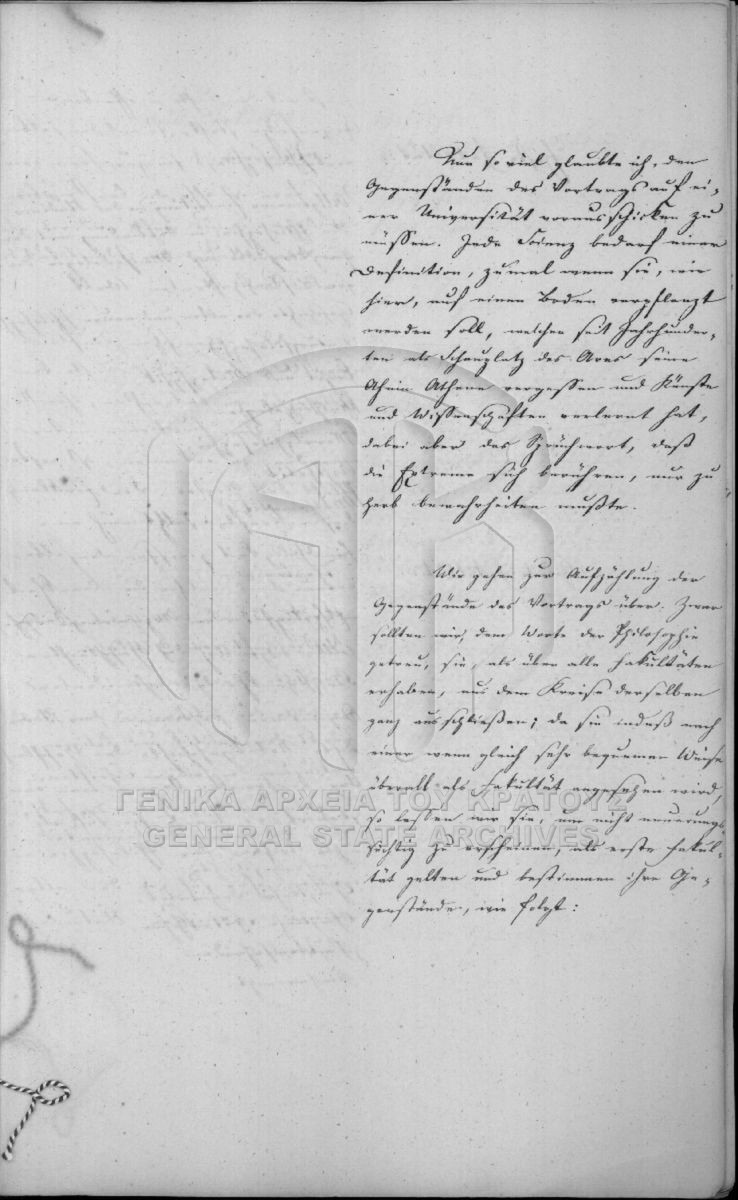 Nur so viel glaubte ich, den
Gegenständen des Vortrags auf ei-
ner Universität vorausschicken zu
müssen. Jede Scienz bedarf einer
Definition, zumal wenn sie, wie
hier, auf einen Boden verpflanzt
werden soll, welcher seit Jahrhunder-
ten als Schauplatz des Ares seine
Ahnin Athene vergessen und Künste
und Wissenschaften verlernt hat,
dabei aber das Sprüchwort, daß
die Extreme sich berühren, nur zu
herb bewahrheiten mußte.
Wir gehen zur Aufzählung der
Gegenstände des Vortrags über. Zwar
sollten wir, dem Worte der Philosophie
getreu, sie, als über alle Fakultäten
erhaben, aus dem Kreise derselben
ganz ausschließen; da sie indeß nach
einer wenn gleich sehr bequemen Weise
überall als Fakultät angesehen wird,
so lassen wir sie, um nicht neuerungs-
süchtig zu erscheinen, als erste Fakul-
tät gelten und bestimmen ihre Ge-
genstände, wie folgt:
ΓΕΝΙΚΑ ΑΡΧΕΙΑ ΤΟΥ ΚΡΑΤΟΥΣ
GENERAL STATE ARCHIVES